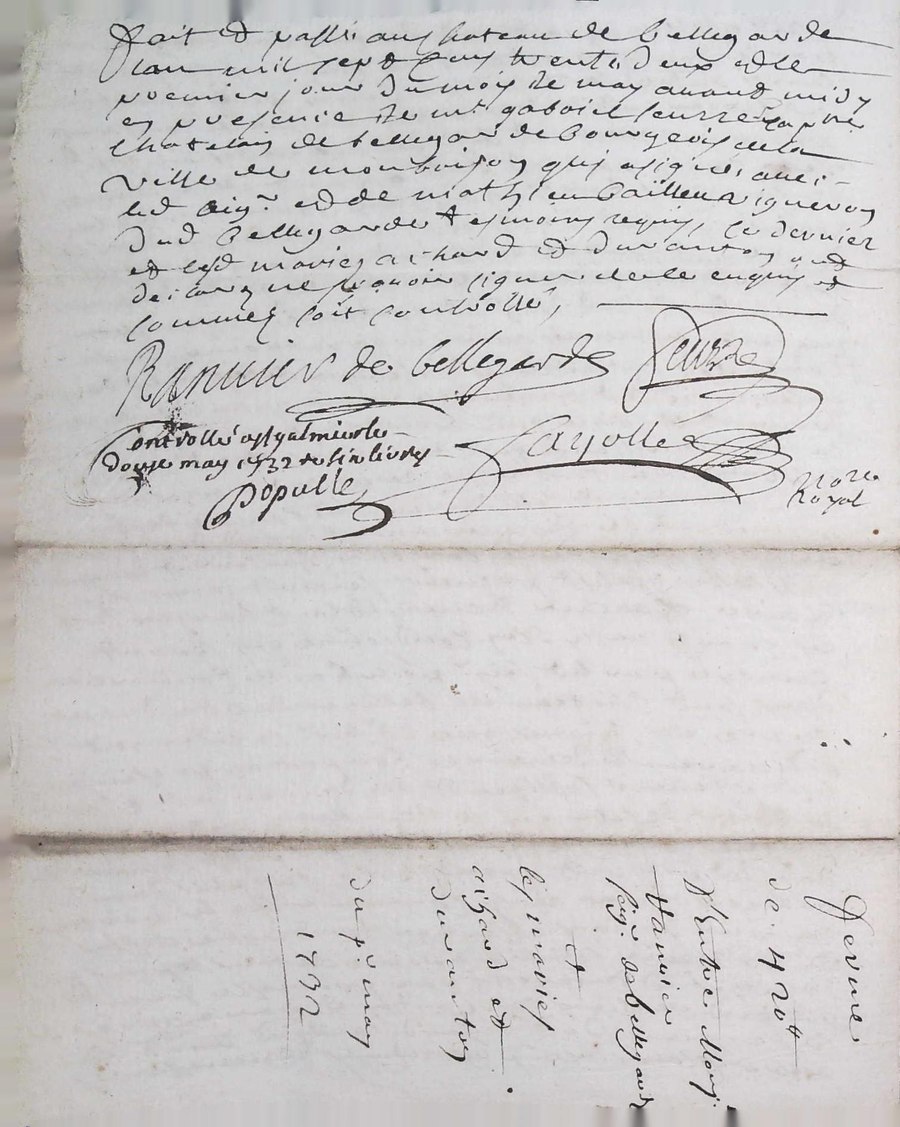 fait et passé au chateau de bellegarde
lan mil sept cens trente deux et le
premier jour du mois de may avant midy
en presence de mr gabriel feurre
chatelain de bellegarde bourgeois de la
ville de monbrison qui a signé avec
led seigr et de mathieu bailleu vigneron
dud bellegarde temoins requis, ce dernier
et lesd mariés achard et duranton ont
declaré ne scavoir signer de ce enquis et
sommés soit controllé,
Ranvier de bellegarde feurre
Controllé a St galmier le
douze may 1732 six livres
Populle
fayolle
notre
Royal
ferme
de 420 tt
Dentre Monsr
Ranvier
seigr de bellegarde
et
les mariés
achard et
duranton
du pr may
1732